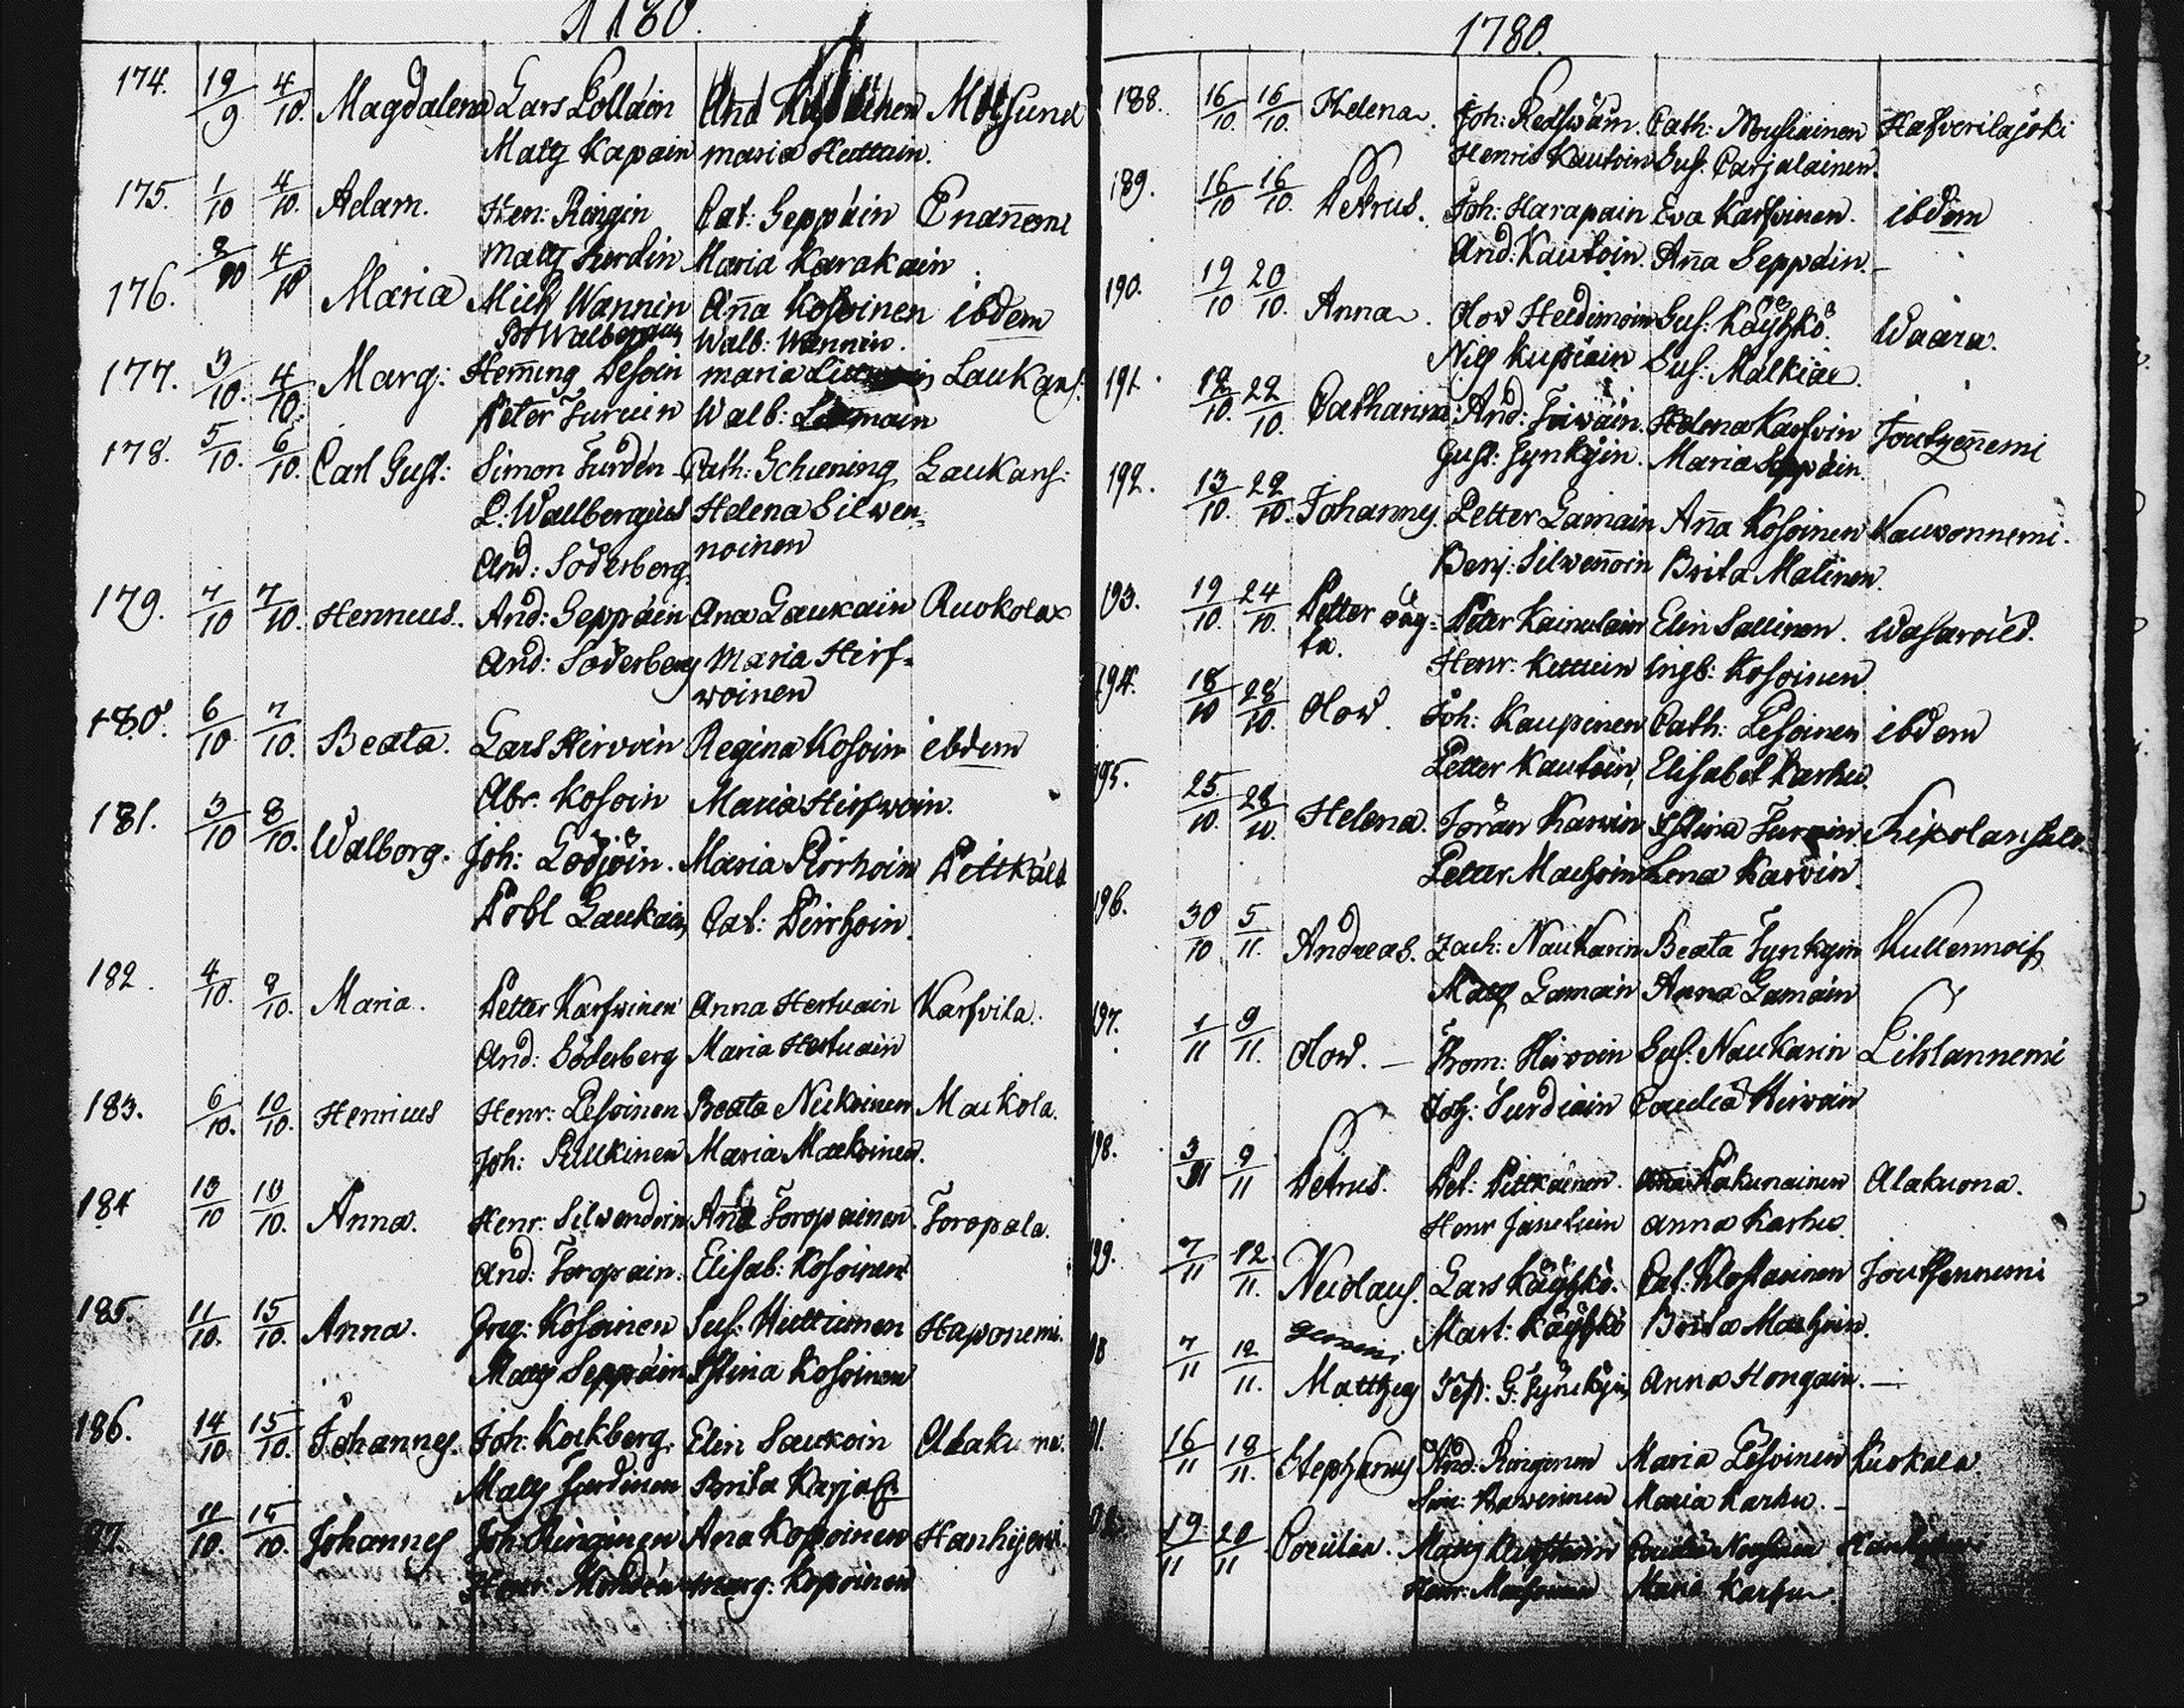 1780.
174. 19/9 4/10. Magdalena Lars Lolläin And Motsund
Matts Kapain maria Huttain.
175. 1/10 4/10. Adam. Hen: Ringin Cat: Seppäin Enañemi
Matts Turdin Maria Karakain
176. 2/10 4/10 Maria Mich Wannin Aña Kosoinen ibdem
Walb: Wannin.
177. 3/10. 4/10. Marg: Hem̃ing Pesoin maria Laukans:
Peter Turuin Walb:
178. 5/10. 6/10. Carl Gust: Simon Turdén Cath: Schening Laukans:
P: Wallbergius Helena Silwen-
And: Söderberg. noinen
179. 7/10 7/10. Henricus. And: Seppäin Ana Laukain Ruokolax
And: Söderberg Maria Hirf-
woinen
180. 6/10 7/10. Beata. Lars Hirvoin Regina Kosoin ibdem
Abr. Kosoin Maria Hirfwoin.
181. 3/10 8/10. Walborg. Joh: Lödjöin. Maria Pirhoin Pitkäld
Pobl Laukain Cat: Pirrhoin.
182. 4/10. 8/10. Maria. Petter Karfwinen Anna Hertuain Karfvila.
And: Söderberg Maria Hertuain
183. 6/10. 10/10. Henricus Henr: Pesoinen Beata Nikoinen Maukola.
Joh: Pulkinen Maria Maukoinen.
184 10/10 10/10. Anna. Henr: Silwendoin Aña Toropainen. Toropala.
And: Toropain. Elisab: Kosoinen
185. 11/10. 15/10. Anna. Greg: Kosoinen Sus: Huttunen Haponemi.
Matts Seppäin Stina Kosoinen
186. 14/10 15/10. Johannes. Joh: Kockberg. Elin Saukoin
Matts Turdinen Brita Karjal:
11/10. 15/10. Johannes Joh Ringinen Ana Kopoinen Hanhijervi.
Henr: Mondén marg: Kopoinen
1780.
188. 16/10. 16/10. Helena. Joh: Redswäin. Cath: Mousiainen Hafverilajoki
Henric Kautoin Sus. Carjalainen.
189. 16/10 16/10. Petrus. Joh: Harapain Eva Karfvinen. ibdem
And: Kautoin. Aña Seppäin.
190. 19/10 20/10. Anna. Olov Heidimoin Sus: Käyhkö. Waara.
Nils Kupiain Sus: Malkiae.
191. 12/10. 22/10. Catharina And: Toiwain. Helena Karfvin Joutzeñemi
Gust: Synkyin. Maria Seppäin.
192. 13/10. 22/10. Johannes. Petter Lamain Aña Kosoinen Kauvonnemi.
Benj: Silweñoin Brita Malinen.
193. 19/10. 24/10. Petter oäg- Peter Kainulain Elin Sallinen. Wasarvild.
ta. Henr: Kuttuin Ingb: Kosoinen
194. 18/10 28/10. Olov. Joh: Kaupinen Cath: Pesoinen ibdem
Petter Kautoin, Elisabet Karhu.
195. 25/10. 28/10. Helena. Jöran Karvin Stina Turuin.
Petter Mausoin Lena Karvin.
196. 30/10. 5/11. Andreas. Zach: Naukarin Beata Synkyin Kullennois
Matts Lamain Anna Lamain
197. 1/11 9/11. Olov. Thom: Hirvoin Sus: Naukarin Lihlannemi
Joh: Turdiain Caecilia Hirvoin
198. 3/11 9/11 Petrus. Pet: Pittkäinen. Aña Räkunainen Alakuona.
Henr Janhuin Anna Karhu.
199. 7/11 12/11. Nicolaus. Lars Käyhkö. Cat: Mostainen Joutsennemi
gemini Mart: Käyhkö Brita Mauhoin.
7/11 12/11. Matthæus Test: G: Synckyin, Anna Hongain.
16/11 18/11. Stephanus And: Ringinen Maria Pesoinen Kuokala.
Sim: Maria Karhu.
19/11 20/11 Cæcilia. Matts Caecilia
Henr: Maria Karhu.